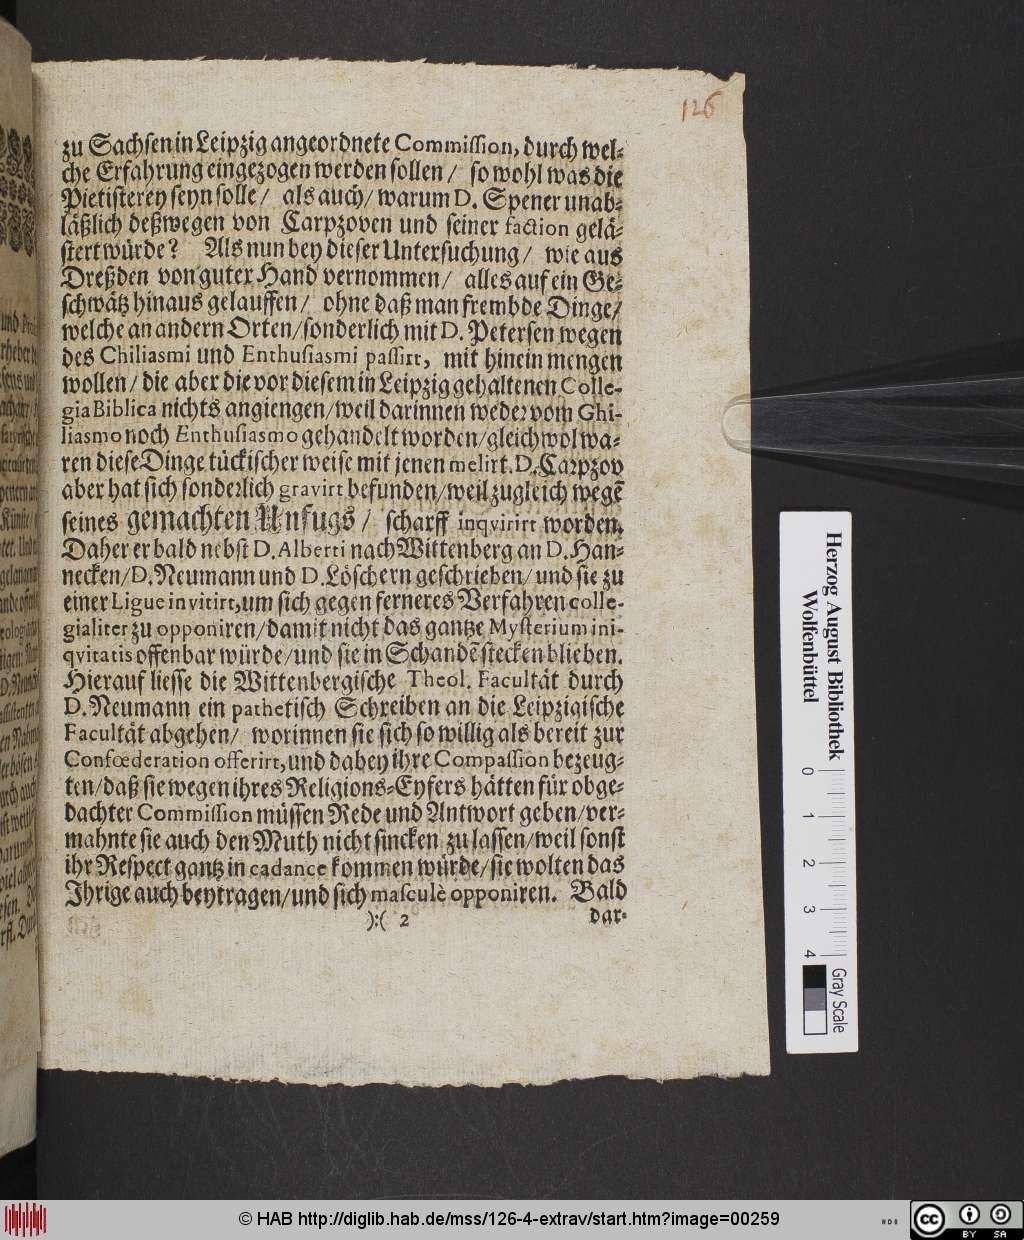 126
zu Sachsen in Leipzig angeordnete Commission, durch wel-
che Erfahrung eingezogen werden sollen / so wohl was die
Pietisterey seyn solle / als auch / warum D. Spener unab-
läßlich deßwegen von Carpzoven und seiner faction gelä-
stert würde? Als nun bey dieser Untersuchung / wie aus
Dreßden von guter Hand vernommen / alles auf ein Ge-
schwätz hinaus gelauffen / ohne daß man frembde Dinge /
welche an andern Orten / sonderlich mit D. Petersen wegen
des Chiliasmi und Enthusiasmi passirt, mit hinein mengen
wollen / die aber die vor diesem in Leipzig gehaltenen Colle-
gia Biblica nichts angiengen / weil darinnen weder vom Ghi-
liasmo noch Enthusiasmo gehandelt worden / gleichwol wa-
ren diese Dinge tückischer weise mit jenen melirt. D. Carpzov
aber hat sich sonderlich gravirt befunden / weil zugleich wegē
seines gemachten Unfugs / scharff inqvirirt worden.
Daher er bald nebst D. Alberti nach Wittenberg an D. Han-
necken / D. Neumann und D. Löschern geschrieben / und sie zu
einer Ligue invitirt, um sich gegen ferneres Verfahren colle-
gialiter zu opponiren / damit nicht das gantze Mysterium ini-
qvitatis offenbar würde / und sie in Schandē stecken blieben.
Hierauf liesse die Wittenbergische Theol. Facultät durch
D. Neumann ein pathetisch Schreiben an die Leipzigische
Facultät abgehen / worinnen sie sich so willig als bereit zur
Confœderation offerirt, und dabey ihre Compassion bezeug-
ten / daß sie wegen ihres Religions-Eyfers hätten für obge-
dachter Commission müssen Rede und Antwort geben / ver-
mahnte sie auch den Muth nicht sincken zu lassen / weil sonst
ihr Respect gantz in cadance kommen würde / sie wolten das
Ihrige auch beytragen / und sich masculè opponiren. Bald
):( 2 dar-
Herzog August Bibliothek
Wolfenbüttel
0 1 2 3 4
Gray Scale
© HAB http://diglib.hab.de/mss/126-4-extrav/start.htm?image=00259
cc BY SA